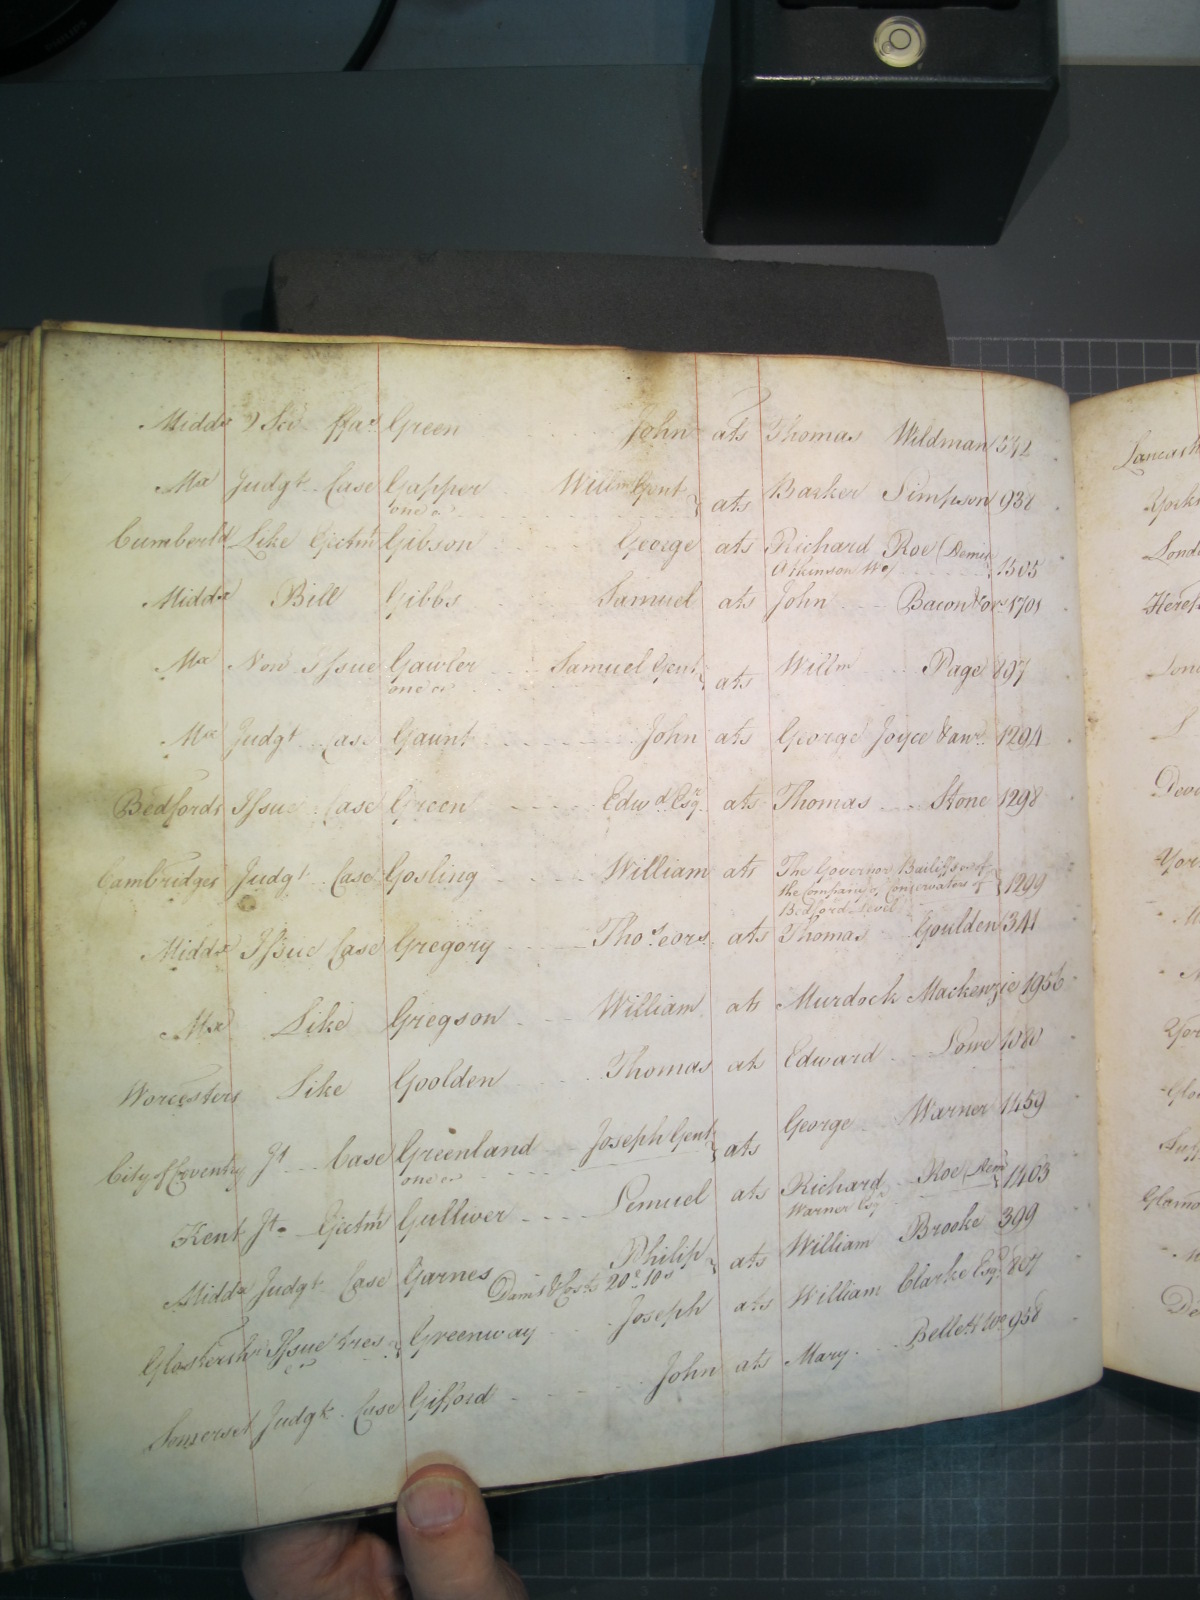 Middx Sci ffas Green John ats Thomas Wildman 542
Mx Judgt Case Gapper Willm Gent ats Barker Simpson 938
one &c
Cumberld Like Ejectmt Gibson George ats Richard Roe (Demise
Atkinson Wo) 1505
Middx Bill Gibbs Samuel ats John Bacon & ors 1701
Mx Non Issue Gawler Samuel Gent ats Willm Page 897
one &c
Mx Judgt Case Gaunt John ats George Joyce & anr 1294
Bedfords Issue Case Green Edwd Esqr ats Thomas Stone 1298
Cambridges Judgt Case Gosling William ats The Governor Bailiffs of
the Company of Conservators of 1299
Bedford Level
Middx Issue Case Gregory Thos & ors ats Thomas Goulden 341
Mx Like Gregson William ats Murdock Mackenzie 1956
Worcesters Like Goolden Thomas ats Edward Lowe
City of Coventry Jt Case Greenland Joseph Gent ats George Warner 1459
one &c
Kent Jt Ejectmt Gulliver Lemuel ats Richard Roe (Demise 1403
Warner Esqr
Middx Judgt Case Garnes Philip ats William Brooke 399
Dams & Costs 20£ 10s
Glostershr Issue tres Greenway Joseph ats William Clarke Esqr 807
Somerset Judgt Case Gifford John ats Mary Bellett Wo 958
Lancash
Yorks
Londo
Heref